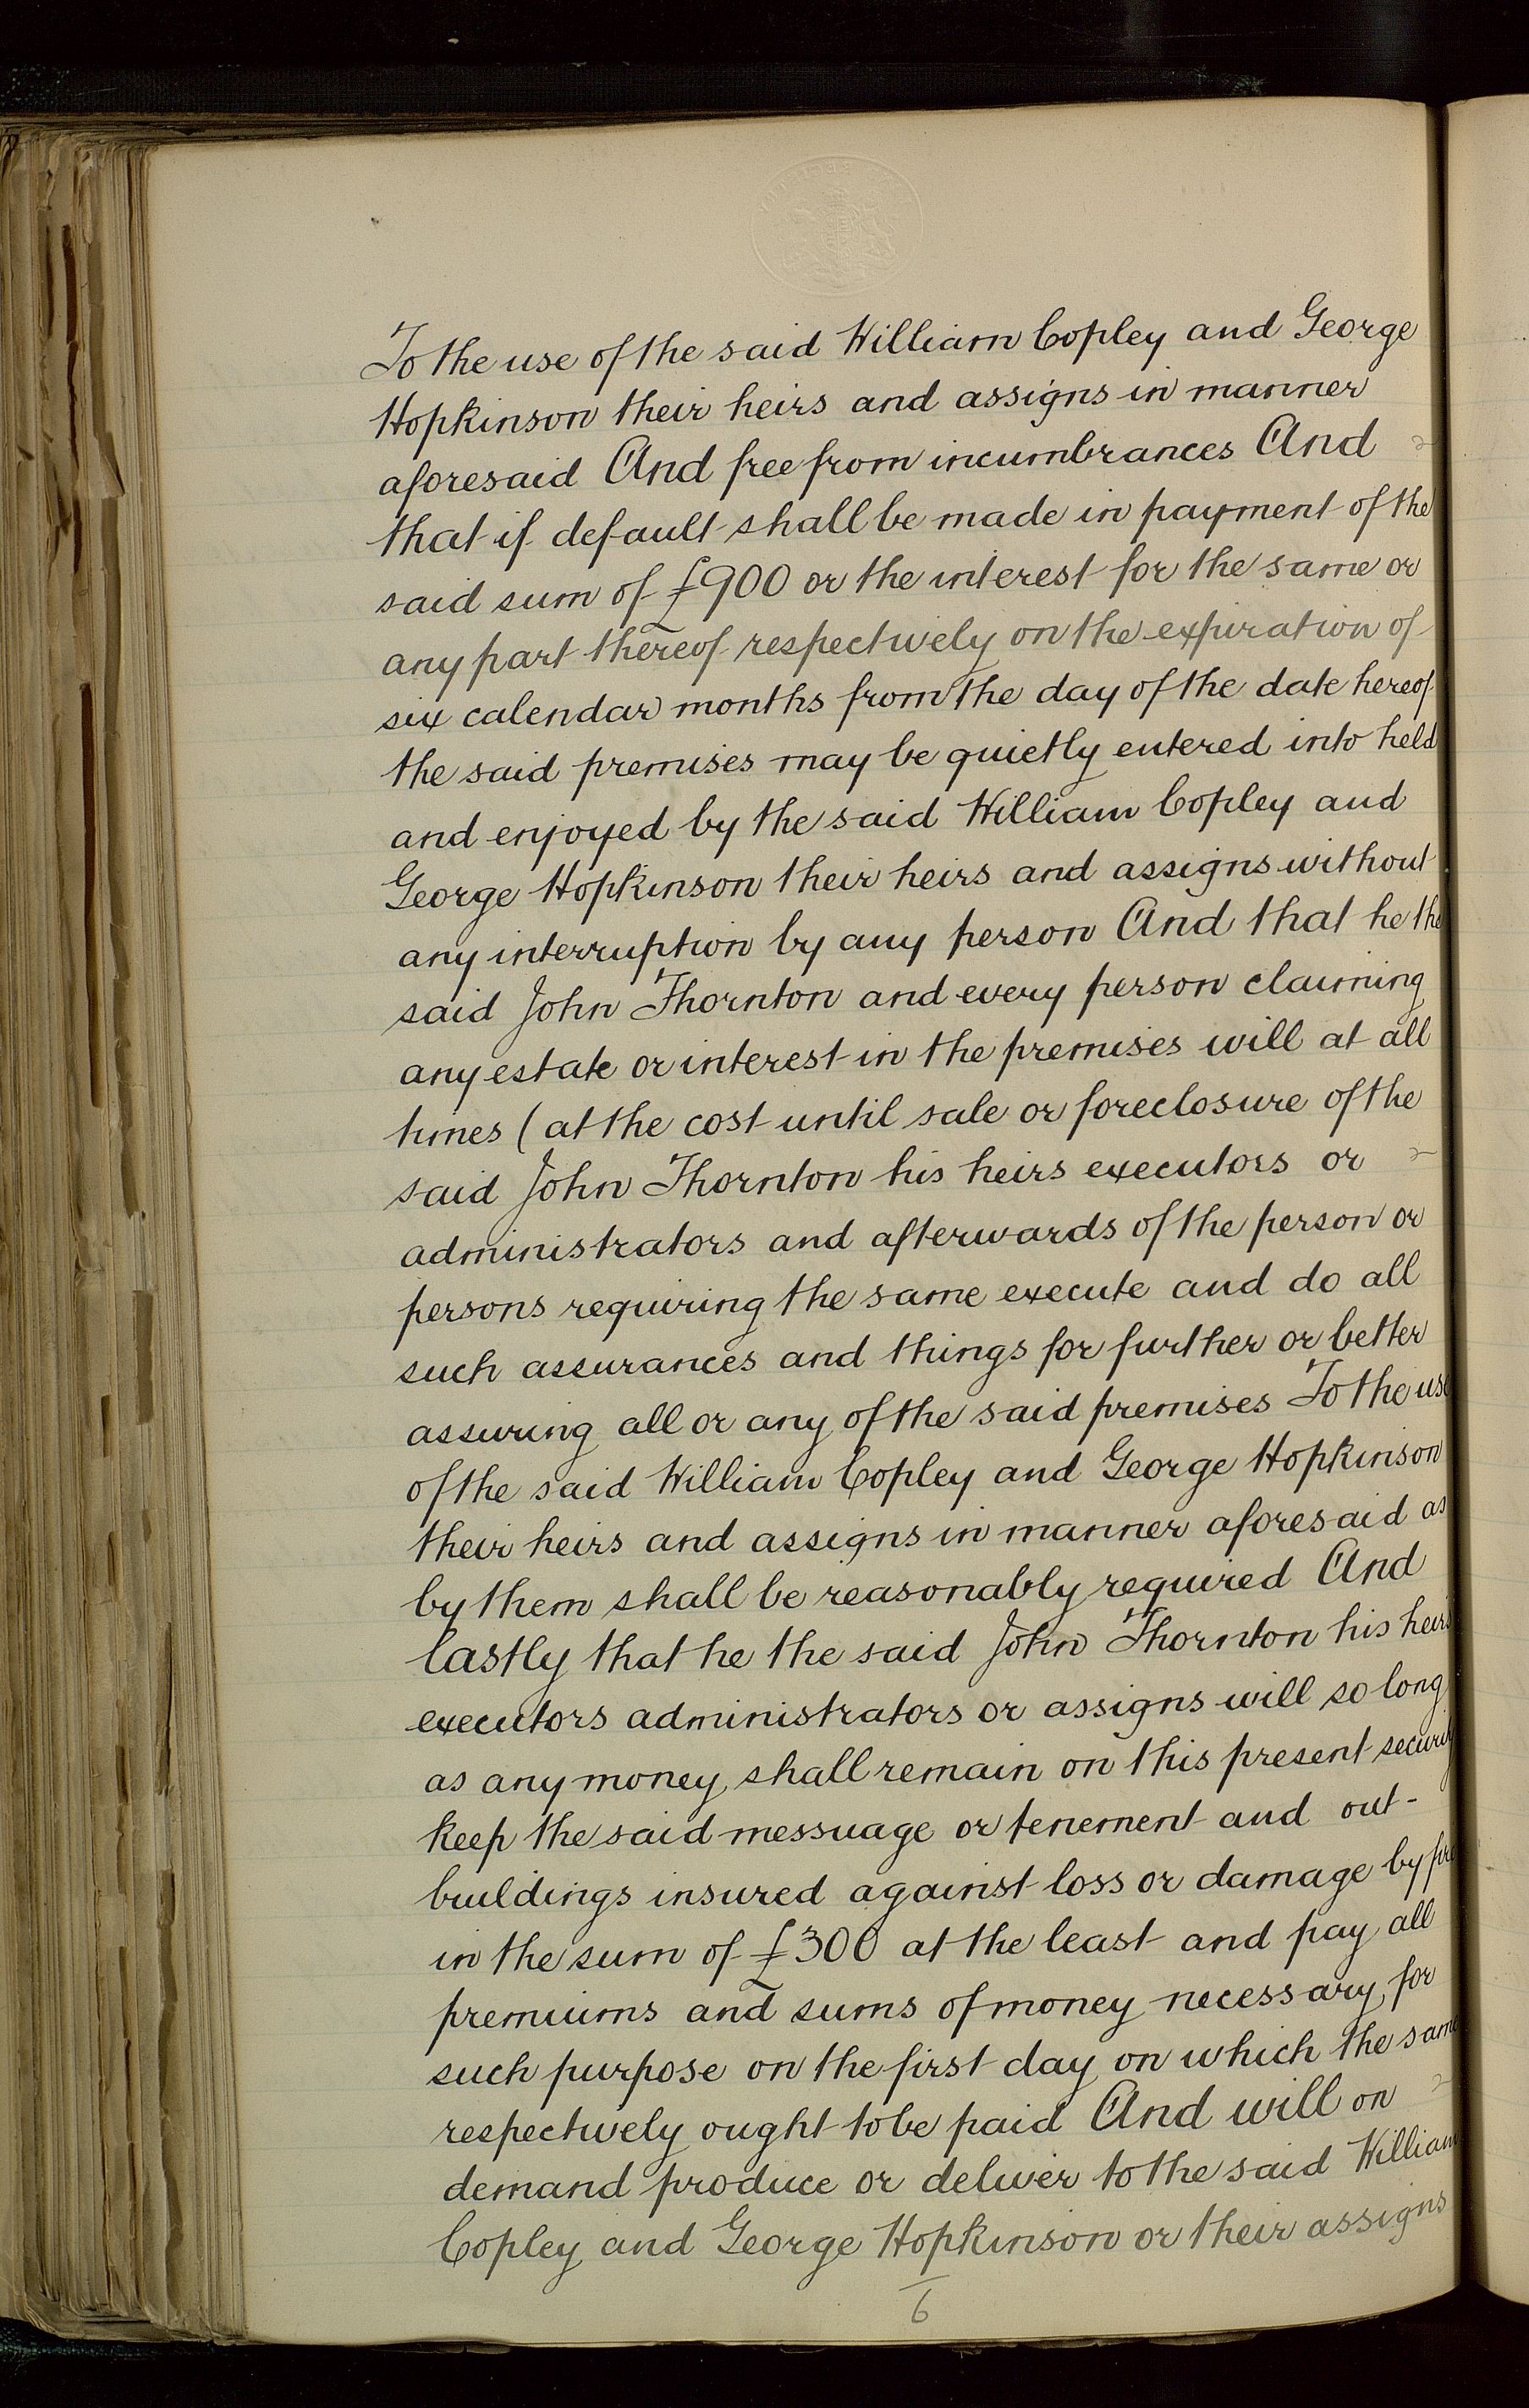 To the use of the said William Copley and George
Hopkinson their heirs and assigns in manner
aforesaid And free from incumbrances And
that if default shall be made in payment of the
said sum of £900 or the interest for the same or
any part thereof respectively on the expiration of
six calendar months from the day of the date hereof
the said premises may be quietly entered into held
and enjoyed by the said William Copley and
George Hopkinson their heirs and assigns without
any interruption by any person And that he the
said John Thornton and every person claiming
any estate or interest in the premises will at all
times (at the cost until sale or foreclosure of the
said John Thornton his heirs executors or
administrators and afterwards of the person or
persons requiring the same execute and do all
such assurances and things for further or better
assuring all or any of the said premises To the use
of the said William Copley and George Hopkinson
their heirs and assigns in manner aforesaid as
by them shall be reasonably required And
lastly that he the said John Thornton his heirs
executors administrators or assigns will so long
as any money shall remain on this present security
keep the said messuage or tenement and out-
buildings insured against loss or damage by fire
in the sum of £300 at the least and pay all
premiums and sums of money necessary for
such purpose on the first day on which the same
respectively ought to be paid And will on
demand produce or deliver to the said William
Copley and George Hopkinson or their assigns
6